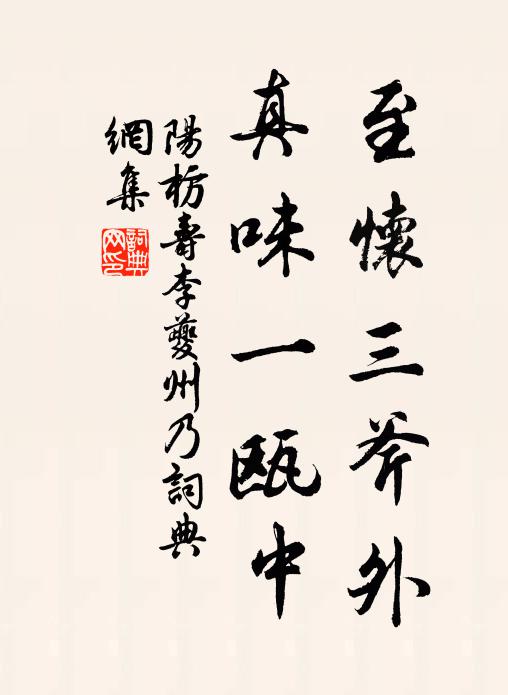 至懷三斧外
真味一甌中
陽枋壽李夔州乃詞典
網集
詞典
网印